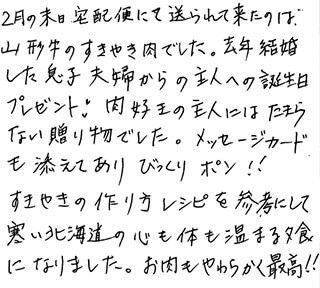 2月の末日宅配便にて送られて来たのは、
山形牛のすきやき肉でした。去年結婚
した息子夫婦からの主人への誕生日
プレゼント! 肉好きの主人には たまら
ない贈り物でした。メッセージカード
も 添えてあり びっくり ポン!!
すきやきの 作り方 レシピを 参考にして
寒い北海道の 心も 体も 温まる夕食
に なりました。お肉も やわらかく 最高!!